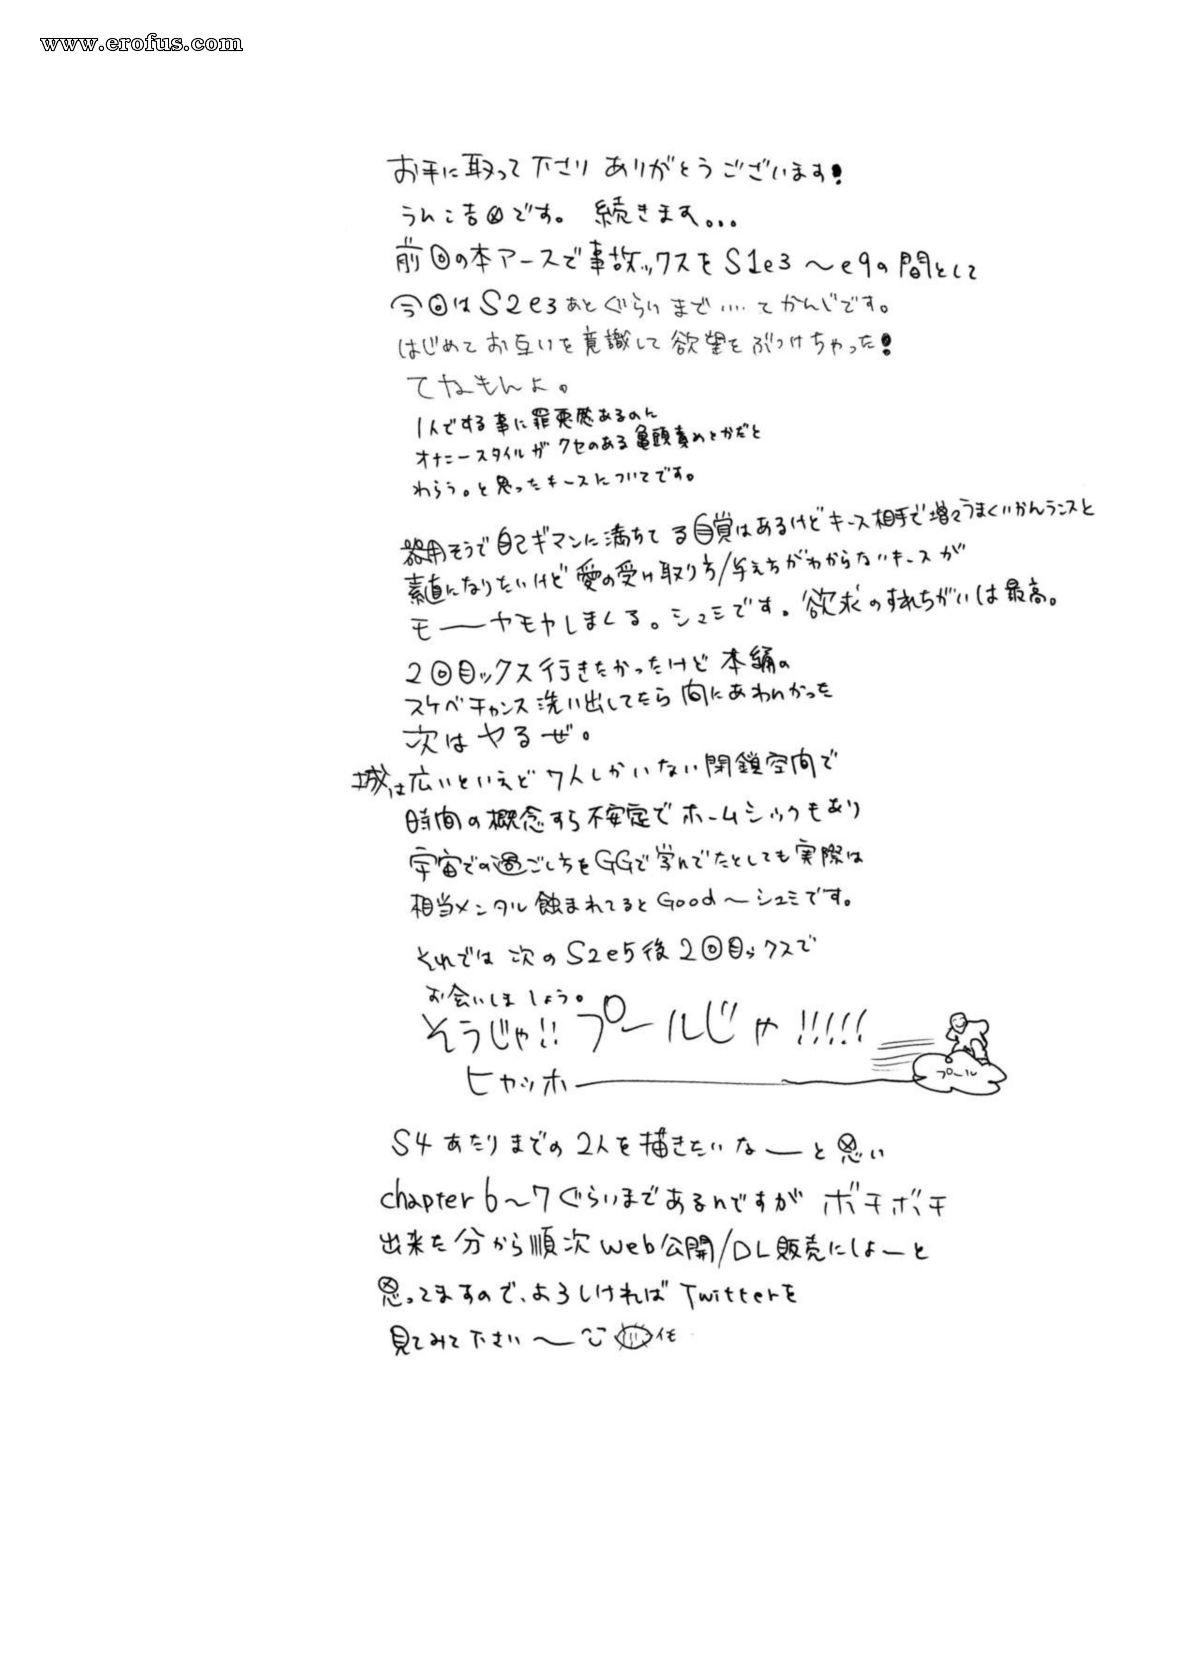 www.erofus.com
お手に取って下さり ありがとうございます!
うんこ吉田です。 続きます...
前回の本アースで事故ックスを S1e3 〜e9の間として
今回は S2e3 あとぐらいまで‥‥てかんじです。
はじめてお互いを意識して欲望をぶつけちゃった!
てなもんよ。
1人でする事に罪悪感あるのん
オナニースタイルが クセのある亀頭責めとかだと
わらう。と思ったキースについてです。
器用そうで自己ギマンに満ちてる自覚はあるけどキース相手で増々うまくいかんランスと
素直になりたいけど愛の受け取り方/与え方がわからないキースが
モーヤモヤしまくる。シュミです。欲求のすれちがいは最高。
2回目ックス行きたかったけど 本編の
スケベチャンス洗い出してたら 間にあわんかった
次はヤるぜ。
城は広いといえど 7人しかいない閉鎖空間で
時間の概念すら不安定で ホームシックもあり
宇宙での過ごし方をGGで学んでたとしても実際は
相当メンタル蝕まれてるとGood〜シュミです。
それでは 次の S2e5後 2回目ックスで
お会いしましょう。
そうじゃ!! プールじゃ!!!!!
ヒャッホー
プール
S4 あたりまでの 2人を描きたいなーと思い
chapter 6〜7ぐらいまであるんですが ボチボチ
出来た分から順次 Web公開/DL販売にしよーと
思ってますので、よろしければ Twitterを
見てみて下さい〜